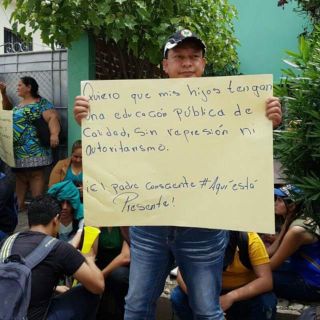 Quiero que mis hijos tengan
una educación pública de
calidad, sin represión ni
autoritarismo.
¡El padre consciente #Aquí está
Presente!